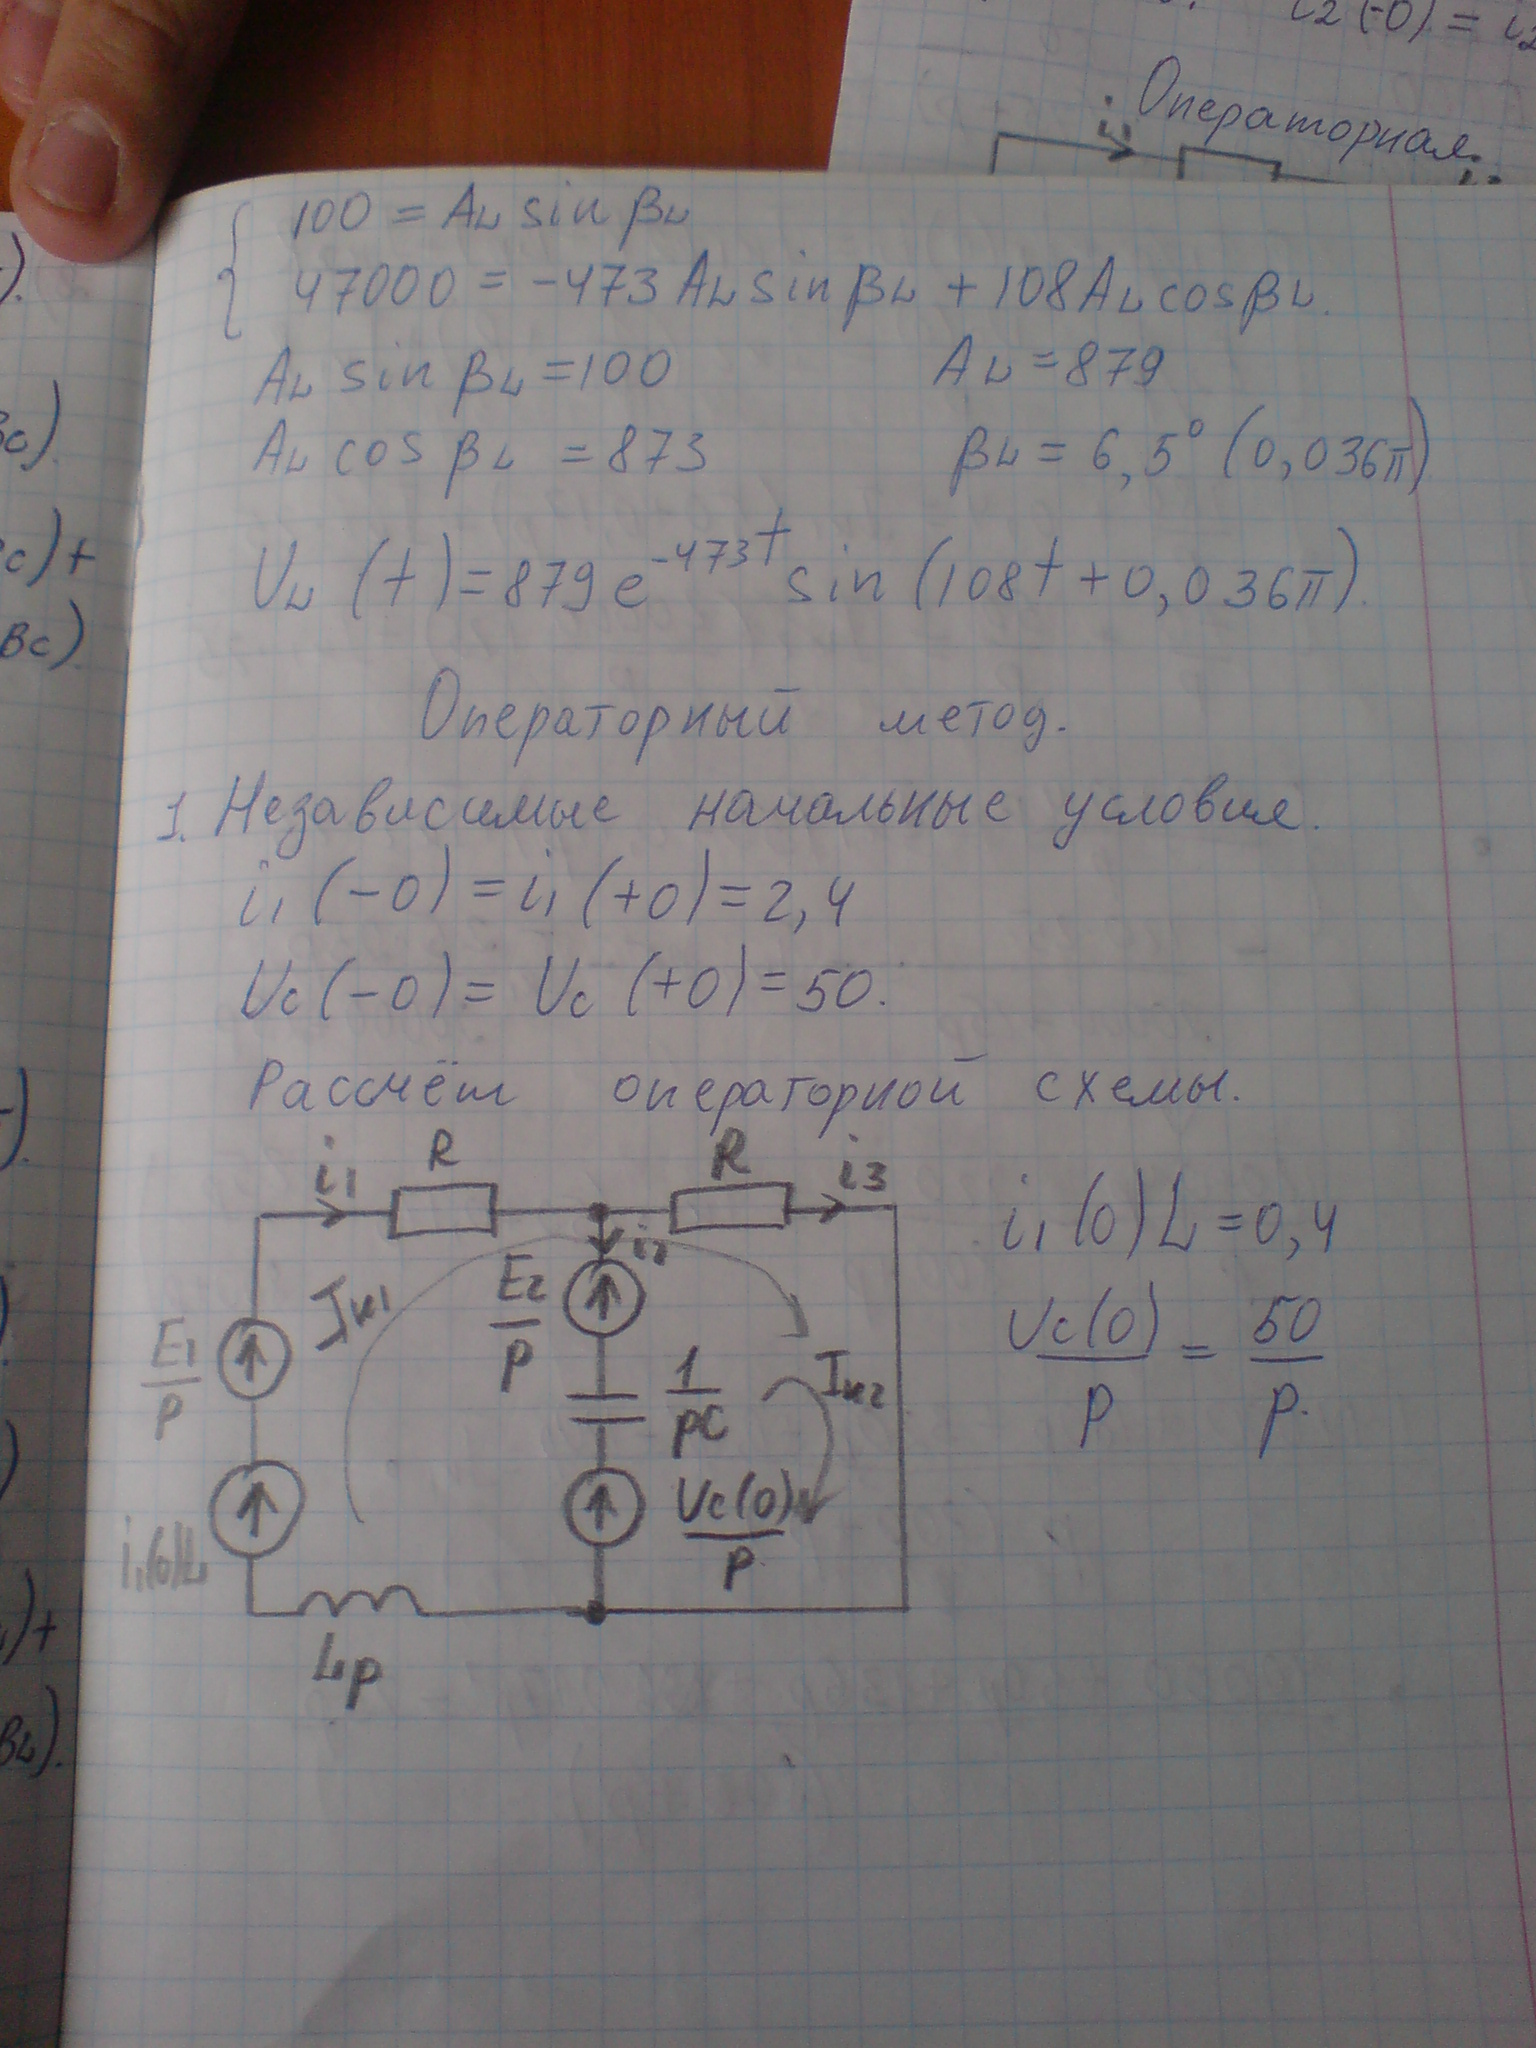 i2(-0) = i2
Операторная
i1
100 = AL sin βL
47000 = -473 AL sin βL + 108 AL cos βL.
AL sin βL = 100 AL = 879
AL cos βL = 873 βL = 6,5° (0,036π)
UL (t) = 879 e^-473t sin (108t + 0,036π).
Операторный метод.
1. Независимые начальные условия.
i1 (-0) = i1 (+0) = 2,4
Uc (-0) = Uc (+0) = 50.
Рассчёт операторной схемы.
i1 R R i3
i2
i1(0)L = 0,4
E1/p Iк1 E2/p 1/pC Iк2
Uc(0)/p = 50/p.
i1(0)L Uc(0)/p
Lp
βc).
c)+
βc)
)+
βL).